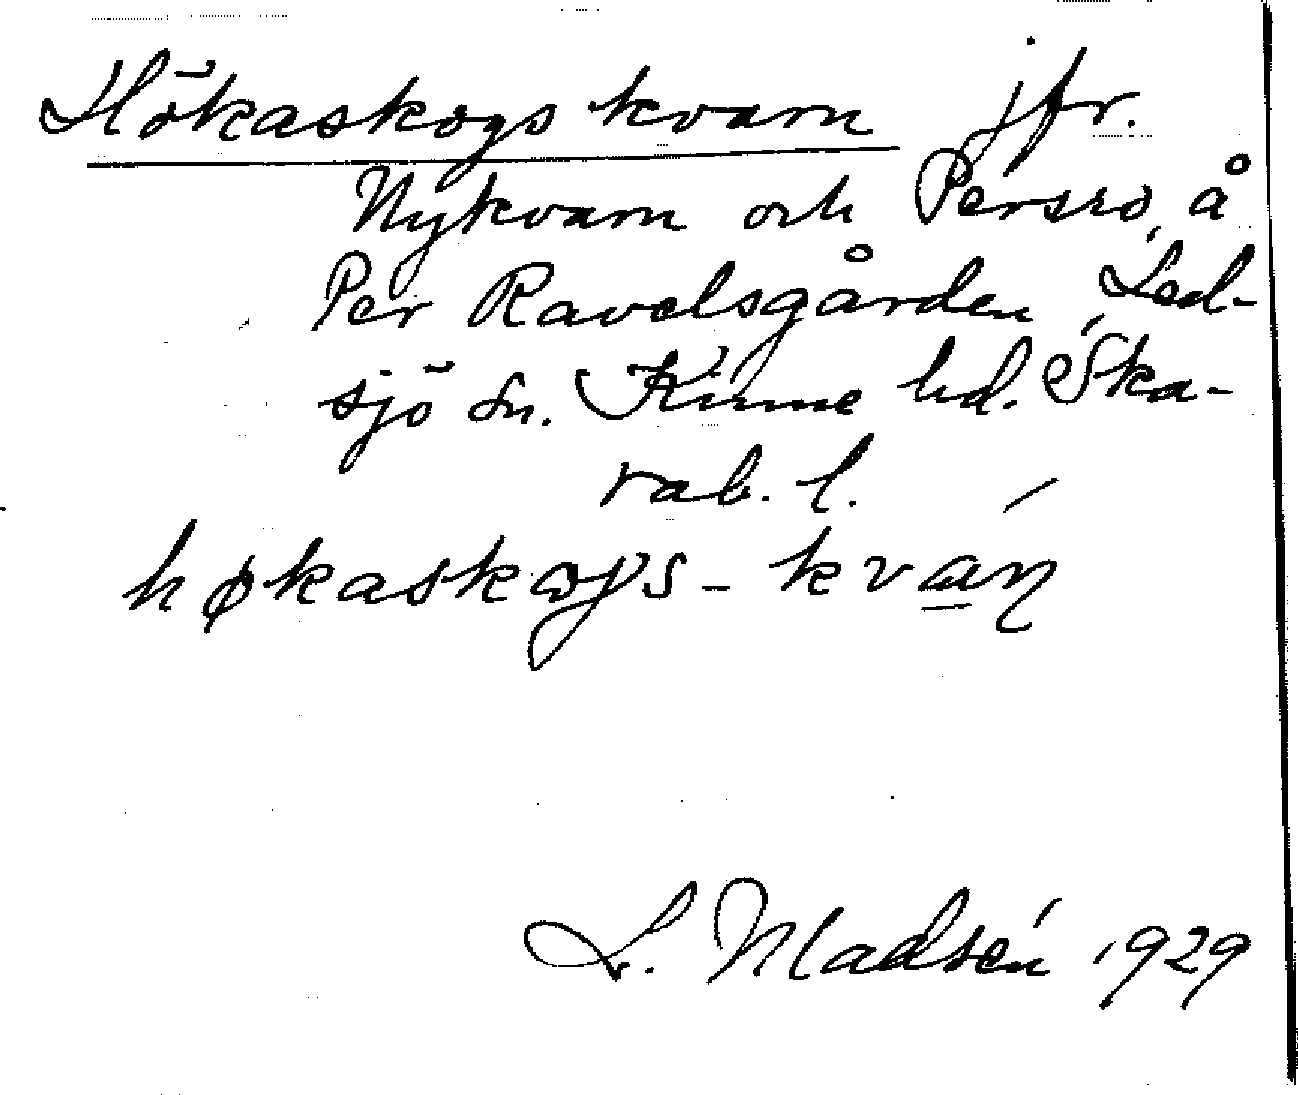 Hökaskogs kvarn jfr.
Nykvarn och Persro å
Per Ravelsgården, Led-
sjö sn. Kinne hd. Ska-
rab. l.
høkaskogs-kván
L. Madsén 1929